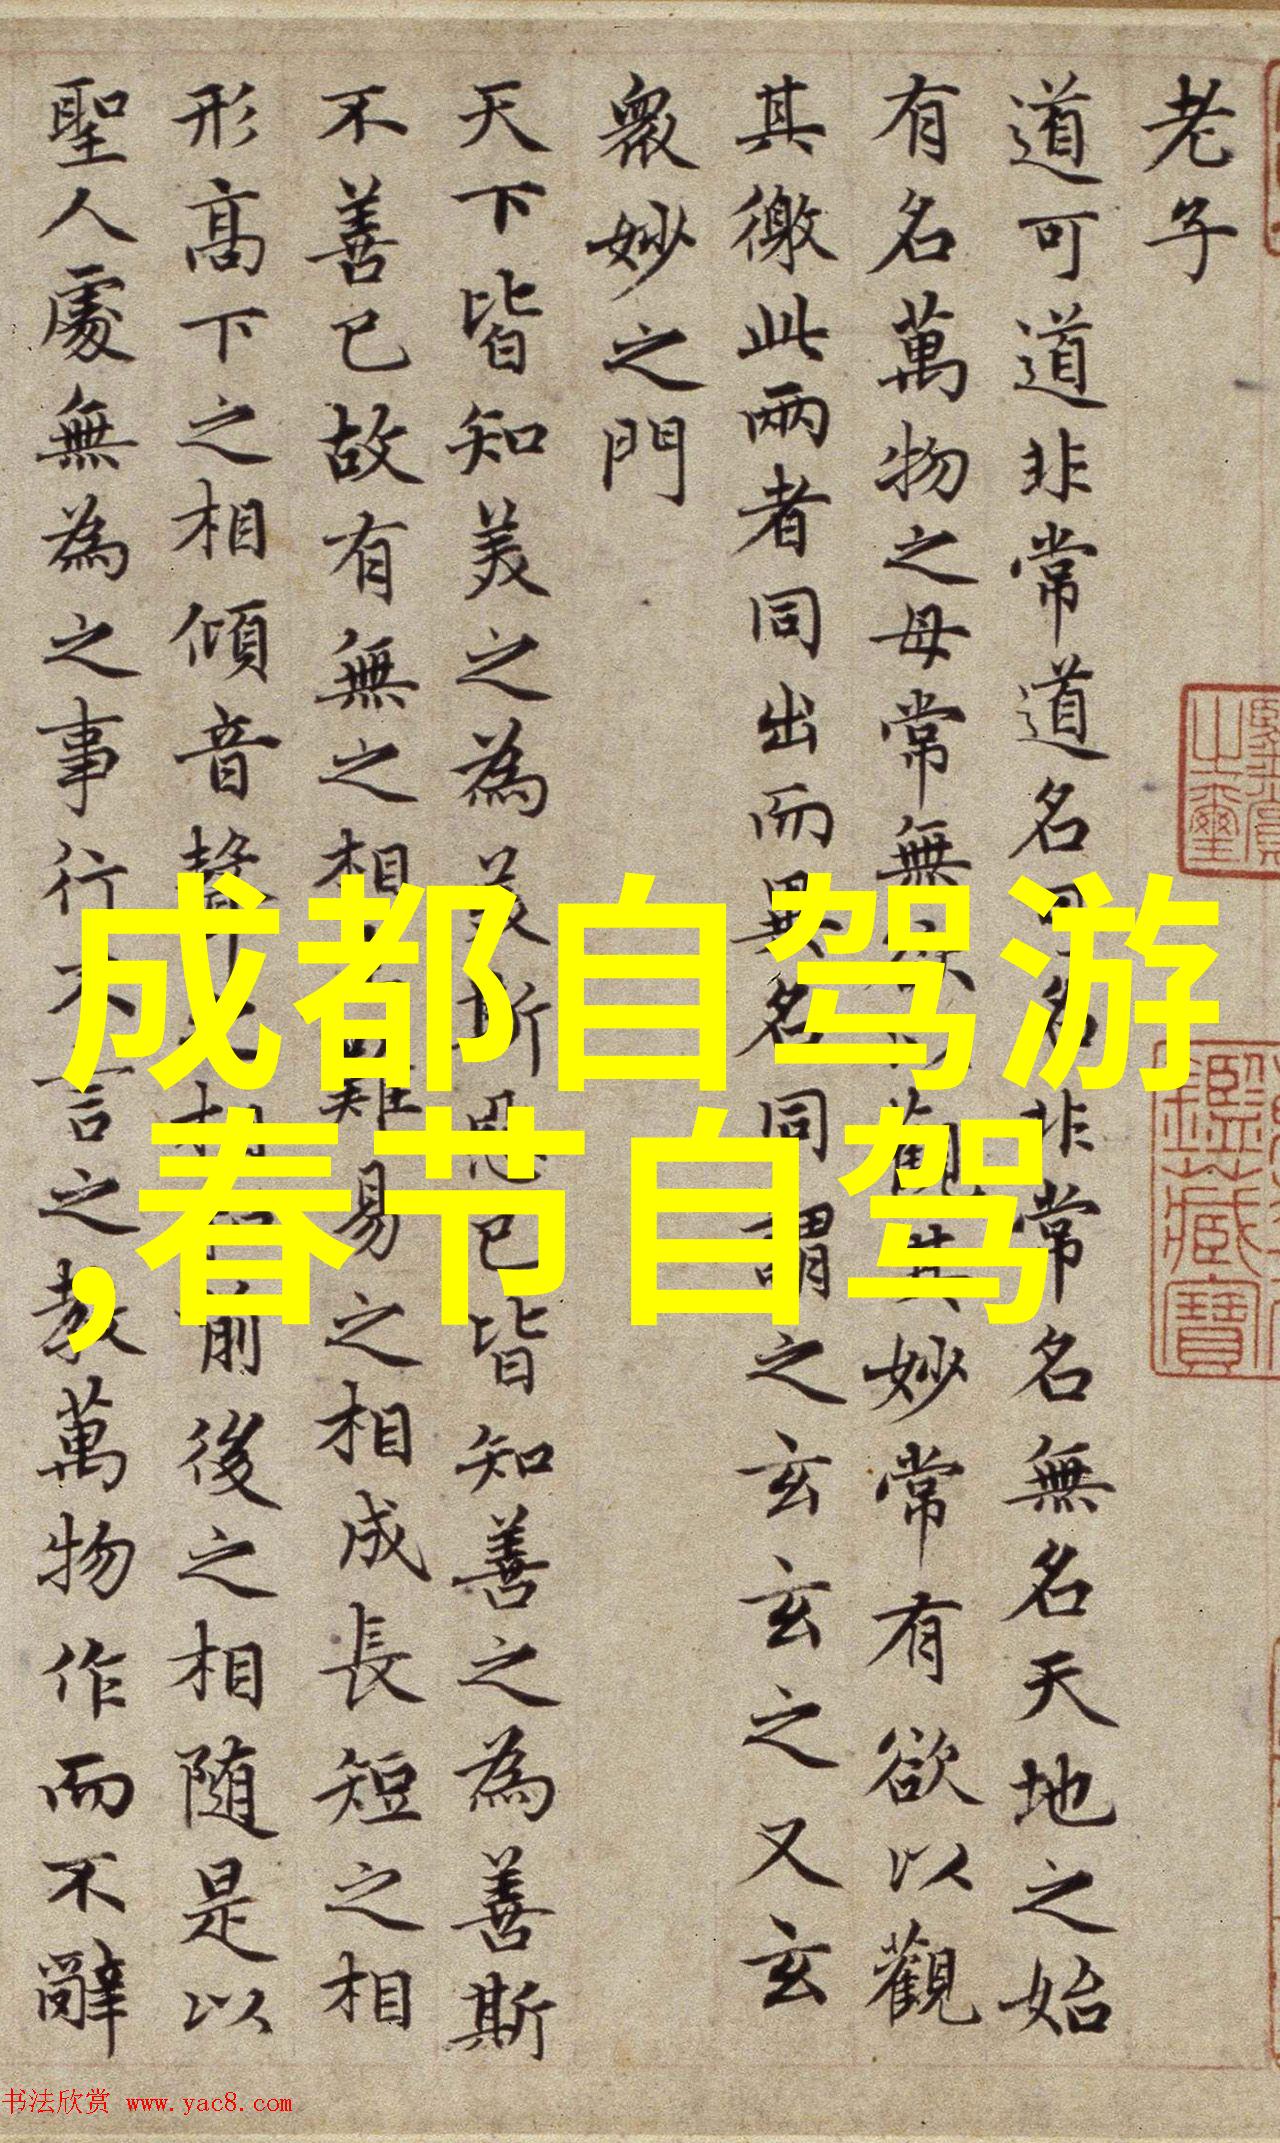 老子
道可道非常道名可名非常名無名天地之始
有名萬物之母常無欲以觀其妙常有欲以觀
其徼此兩者同出而異名同謂之玄玄之又玄
衆妙之門
天下皆知美之為美斯惡已皆知善之為善斯
不善已故有無之相難易之相成長短之相
形高下之相傾音聲之相前後之相随是以
聖人處無為之事行不言之教萬物作而不辭
成都自驾游
,春节自驾
书法欣赏 www.yac8.com